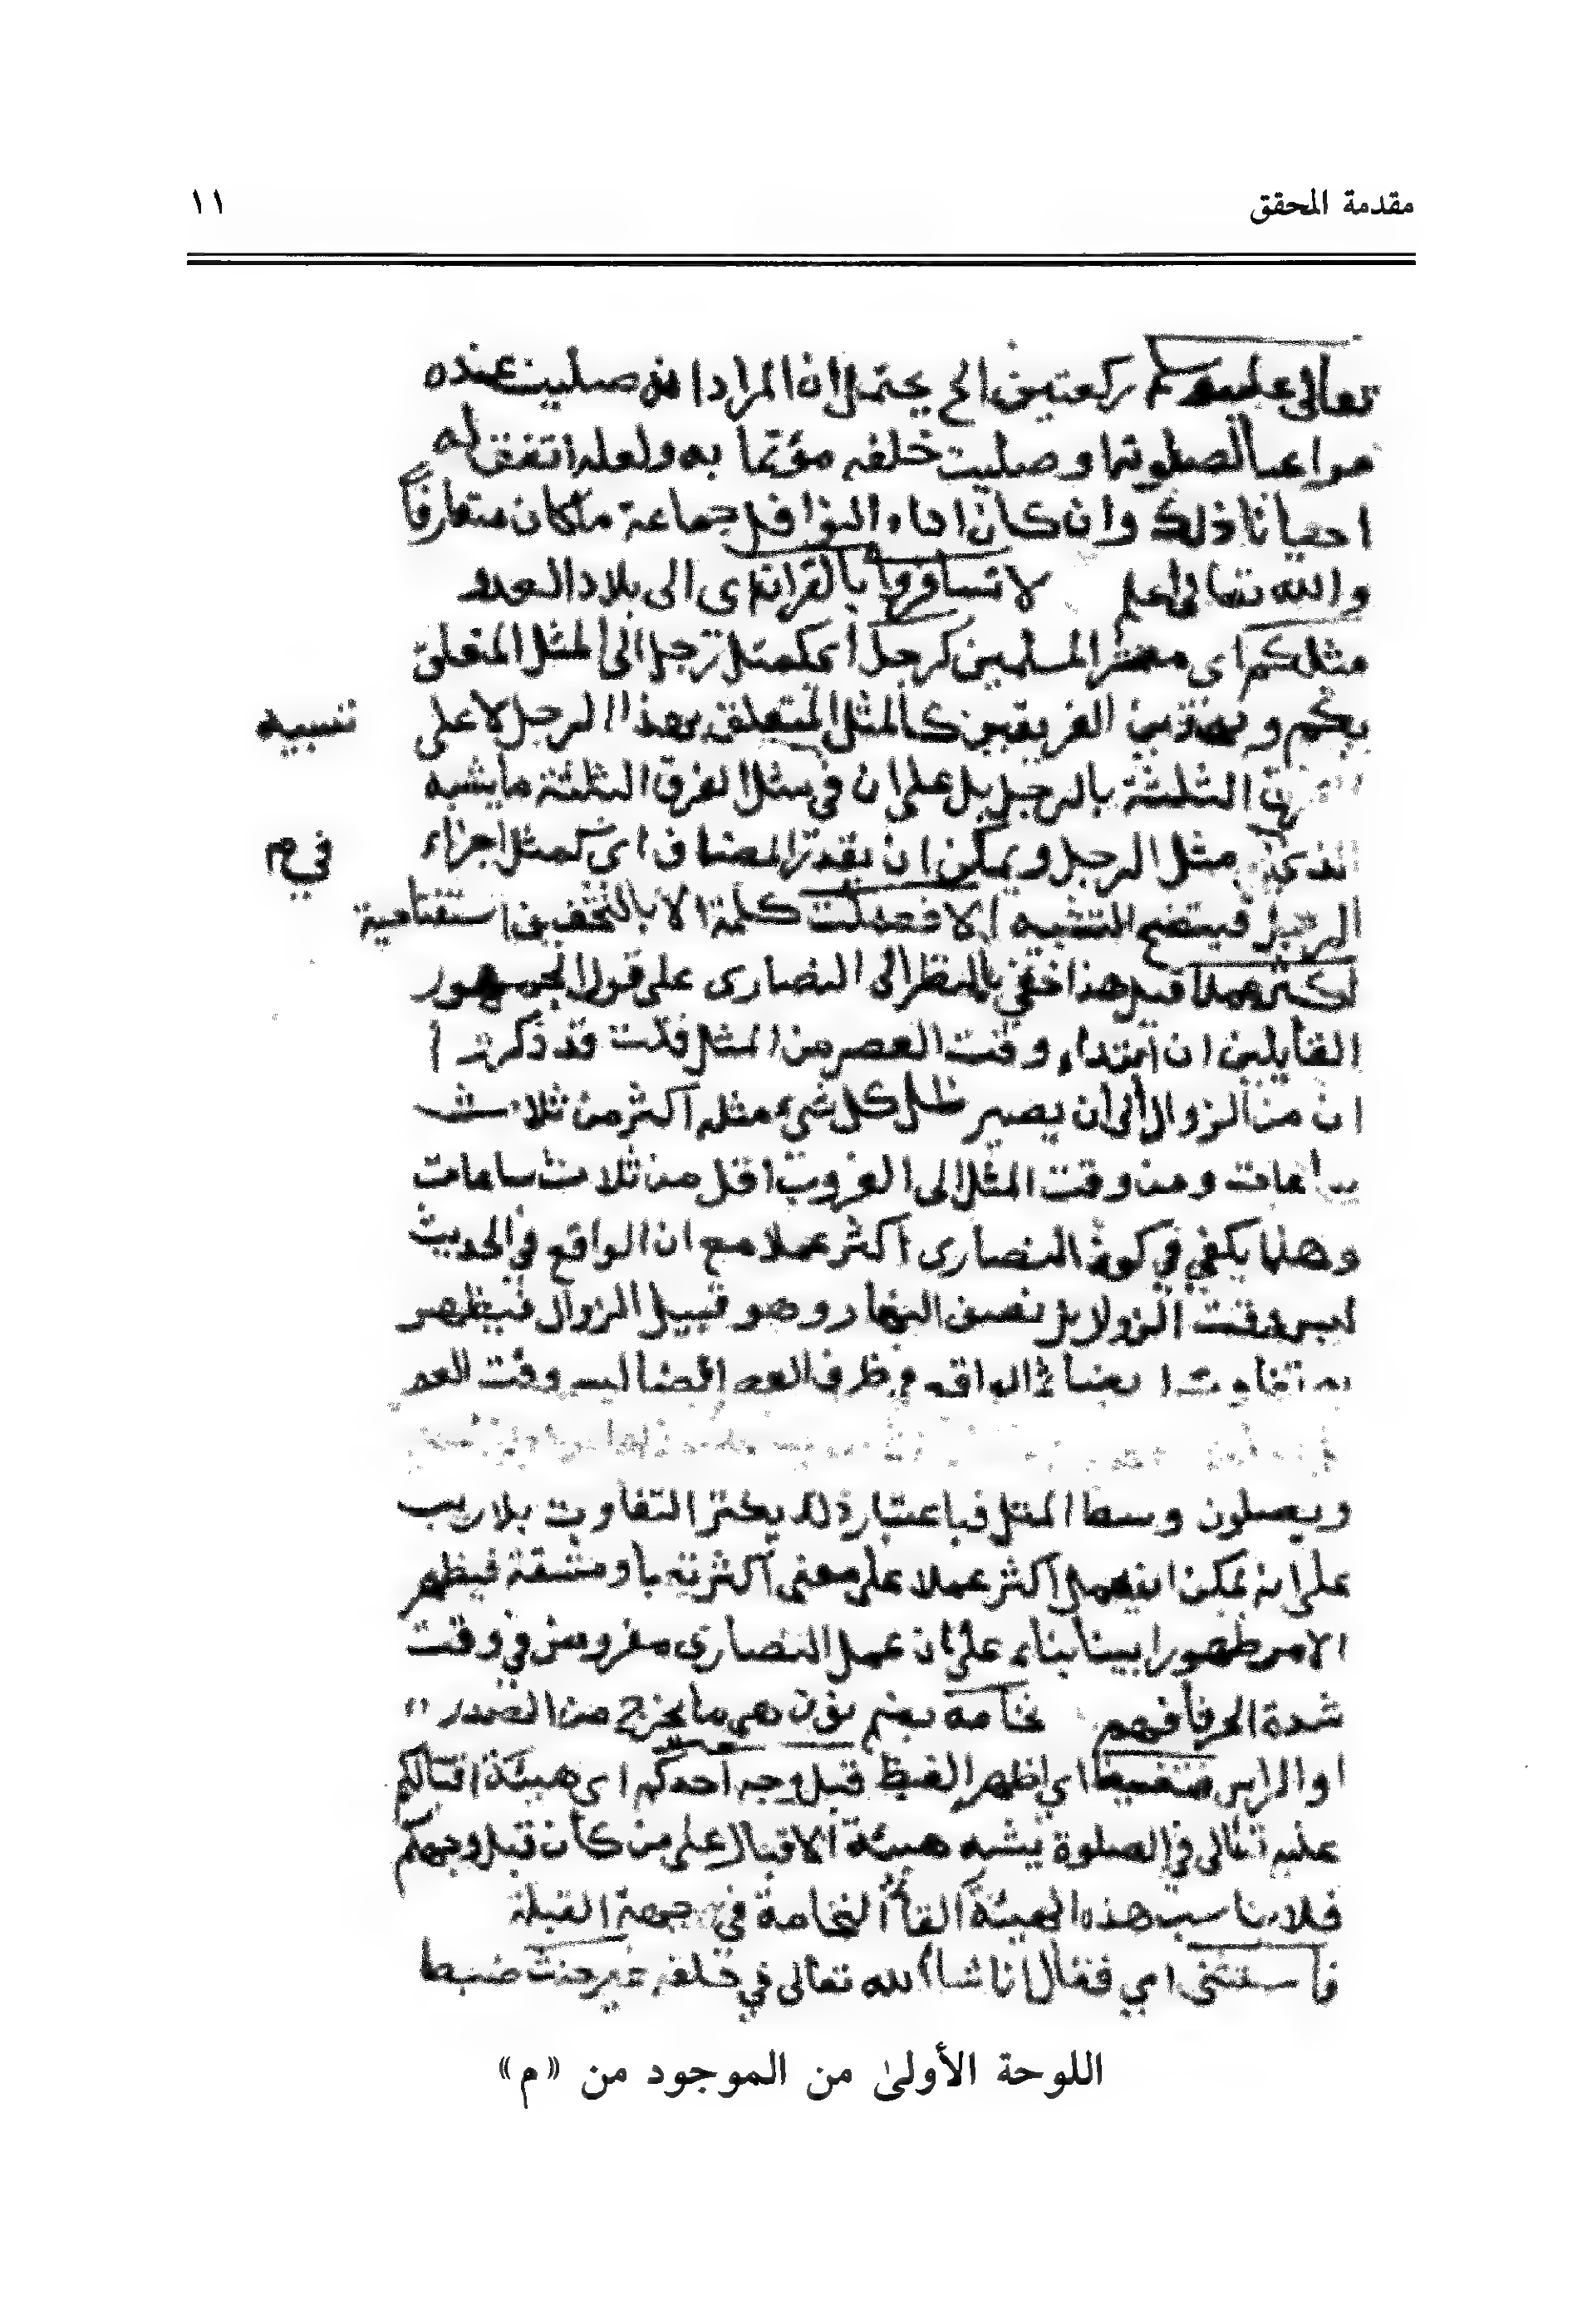 مقدمة المحقق ١١
تعالى عليه وسلم ركعتين الح يحتمل ان المراد انه صليت عنده
مراعيا لصلوتها وصليت خلفه مؤتما به ولعله اتفق له
احيانا ذلك وان كان اداء النوافل جماعة ماكان متعارفا
والله تعالى اعلم لا تسافروا بالقران اى الى بلاد العدو
مثلكم اى معشر المسلمين كرجل اى كمثل رجل اى المثل المتعلق
بكم وبهذين الفريقين كالمثل المتعلق بهذا الرجل لا على تشبيه
الثلثة بالرجل بل على ان في مثل الفرق الثلثة مايشبه
الذى مثل الرجل ويمكن ان يقدر المضاف اى كمثل اجزاء في م
الرجل فيتضح التشبيه الا فعدلت كلمة الا بالتخفيف استفتاحية
اكثر عملا قيل هذا خفي بالنظر الى النصارى على قول الجمهور
القايلين ان ابتداء وقت العصر من المثل قلت قد ذكرت
ان من الزوال الى ان يصير ظل كل شيء مثله اكثر من ثلاث
ساعات ومن وقت المثل الى الغروب اقل من ثلاث ساعات
وهذا يكفي في كون النصارى اكثر عملا مع ان الواقع في الحديث
ليس وقت الزوال بل نصف النهار وهو قبيل الزوال فيظهر
تفاوت ايضا الواقع في طرف العصر ايضا ليس وقت العصر
ويصلون وسط المثل فباعتبار ذلك يكثر التفاوت بلا ريب
على انه يمكن ان يحمل اكثر عملا على معنى اكثريته باومشقة فيظهر
الامر ظهورا بينا بناء على ان عمل النصارى مفروض في وقت
شدة الحر فافهم نخامة بضم نون هى ما يخرج من الصدر
او الراس فتغيظ اي اظهر الغيظ قبل وجه احدكم اى هيئة اقبالكم
عليه تعالى في الصلوة يشبه هيئة الاقبال على من كان قبل وجهكم
فلا يناسب هذه الهيئة القاء النخامة في جهة القبلة
فاستثنى اي فقال ان شاء الله تعالى في حلفه غير حنث ضبط
اللوحة الأولىٰ من الموجود من «م»